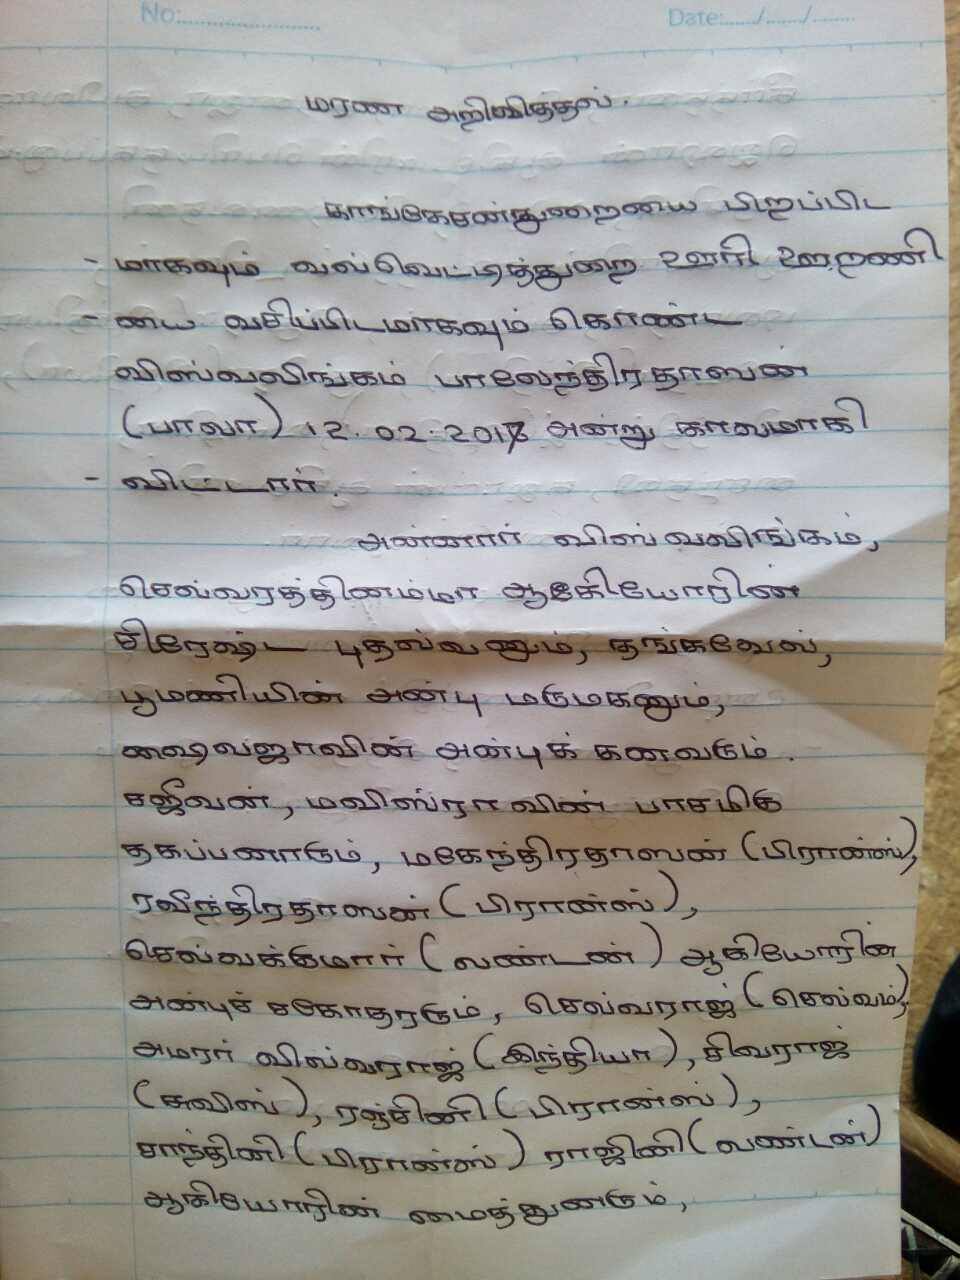 No:.....................
Date:....../....../.......
மரண அறிவித்தல்.
காங்கேசன்துறையை பிறப்பிட
- மாகவும் வல்வெட்டித்துறை ஊரி ஊறணி
- யை வசிப்பிடமாகவும் கொண்ட
விஸ்வலிங்கம் பாலேந்திரதாஸன்
(பாலா) 12.02.2018 அன்று காலமாகி
- விட்டார்.
அன்னார் விஸ்வலிங்கம்,
செல்வரத்தினம்மா ஆகியோரின்
சிரேஷ்ட புதல்வனும், தங்கவேல்,
பூமணியின் அன்பு மருமகனும்,
ஷைலஜாவின் அன்புக் கணவரும்.
சஜீவன், மவிஸ்ராவின் பாசமிகு
தகப்பனாரும், மகேந்திரதாஸன் (பிரான்ஸ்),
ரவீந்திரதாஸன் (பிரான்ஸ்),
செல்வக்குமார் (லண்டன்) ஆகியோரின்
அன்புச் சகோதரரும், செல்வராஜ் (செல்வம்),
அமரர் வில்வராஜ் (இந்தியா), சிவராஜ்
(சுவிஸ்), ரஞ்சினி (பிரான்ஸ்),
சாந்தினி (பிரான்ஸ்) ராஜினி (லண்டன்)
ஆகியோரின் மைத்துனரும்,